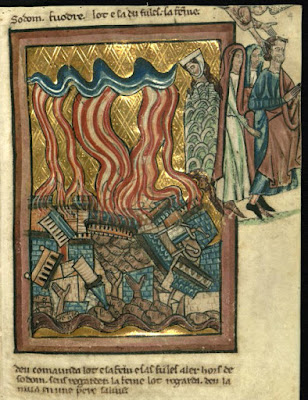 Sodom. fuodre. lot e sa du fules. sa feme.
deu comaunda lot e sa fem e sas fules aler hors de
sodom. saus regarder. la feme lot regarda. deu la
mua en une pere